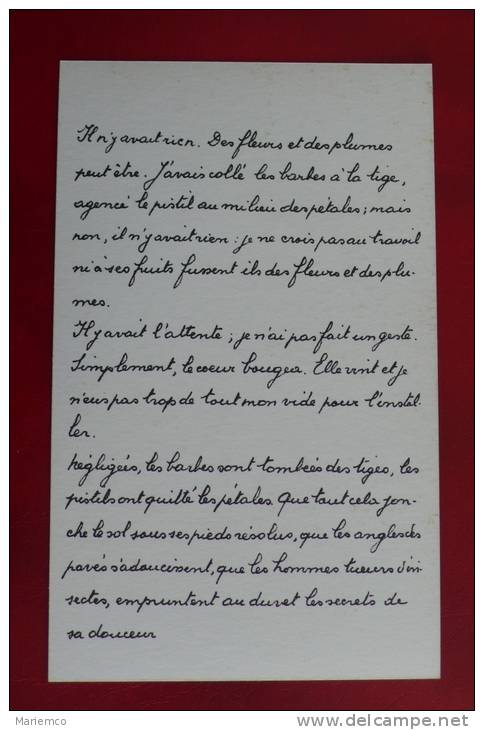 Il n'y avait rien. Des fleurs et des plumes
peut être. J'avais collé les barbes à la tige,
agencé le pistil au milieu des pétales ; mais
non, il n'y avait rien : je ne crois pas au travail
ni à ses fruits fussent ils des fleurs et des plu-
mes.
Il y avait l'attente ; je n'ai pas fait un geste.
Simplement, le coeur bougea. Elle vint et je
n'eus pas trop de tout mon vide pour l'instal-
ler.
Négligées, les barbes sont tombées des tiges, les
pistils ont quitté les pétales. Que tout cela jon-
che le sol sous ses pieds résolus, que les angles des
pavés s'adoucissent, que les hommes tueurs d'in-
sectes, empruntent au duvet les secrets de
sa douceur
Mariemco
www.delcampe.net